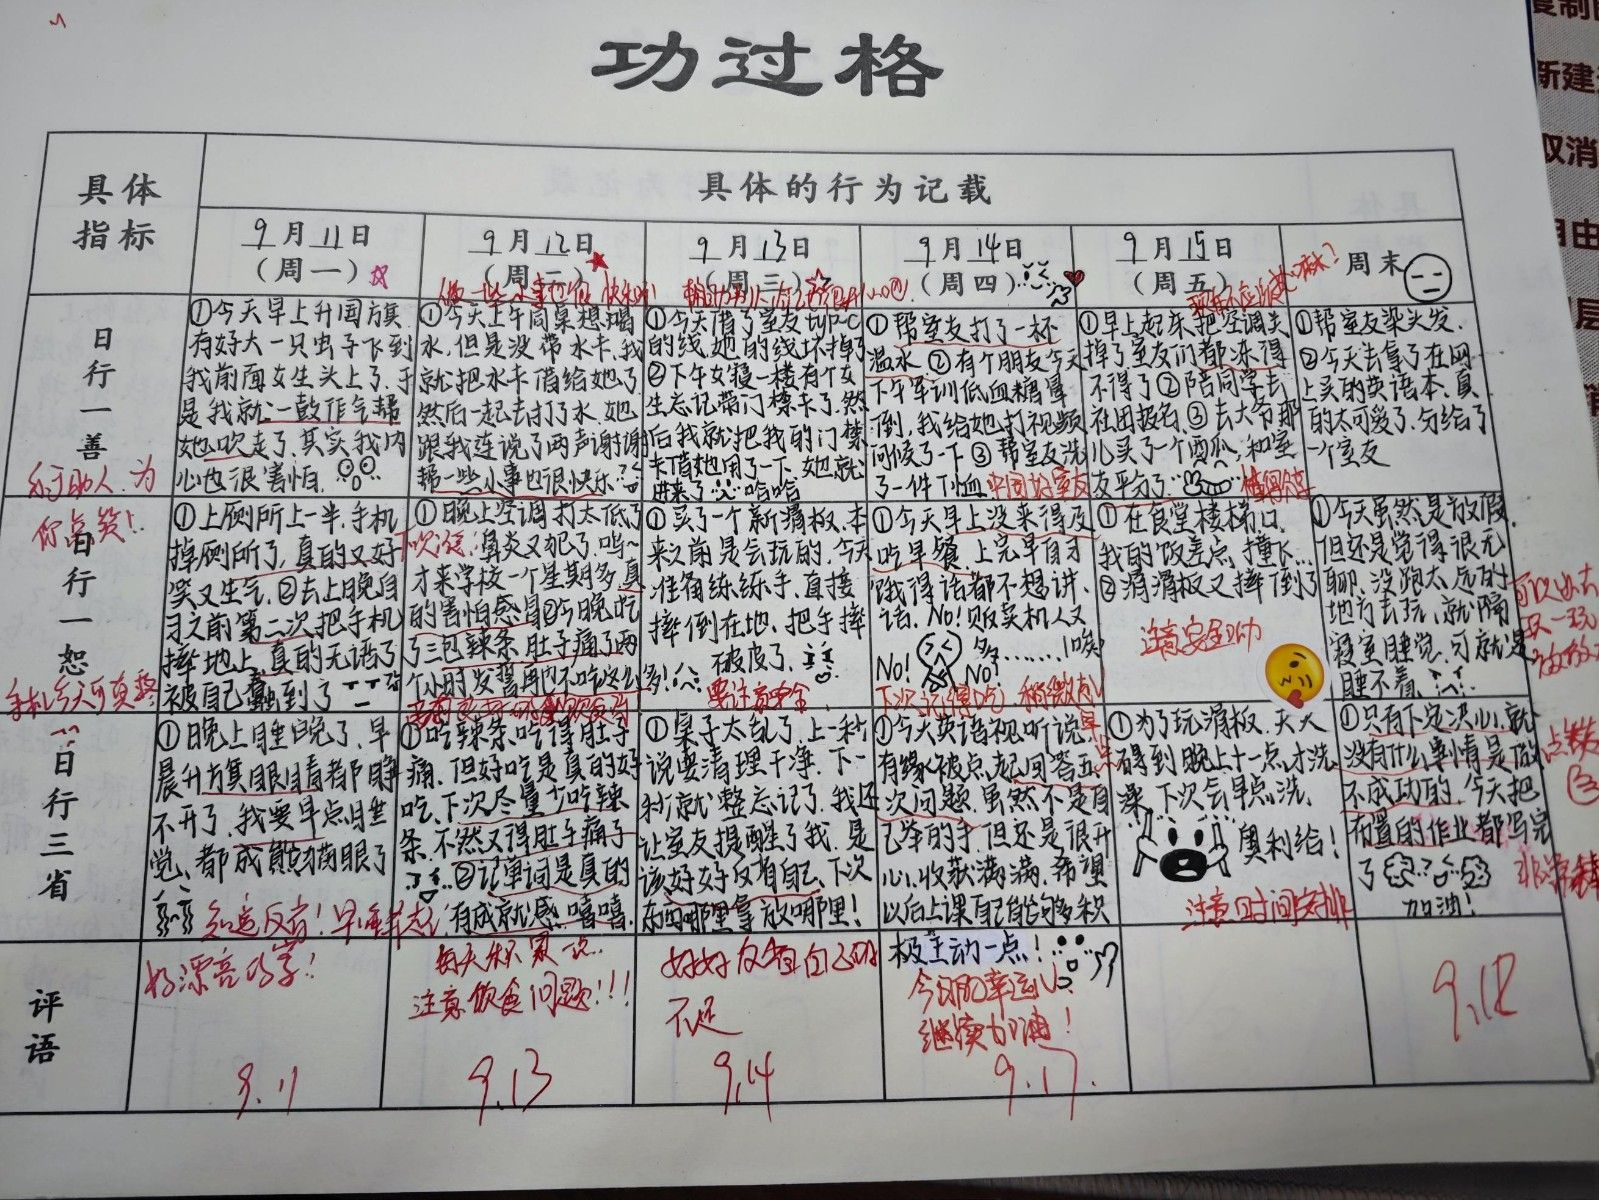 功过格
具体
指标
具体的行为记载
9月11日
（周一）
9月12日
（周二）
9月13日
（周三）
9月14日
（周四）
9月15日
（周五）
周末
做一些小事也很快乐
日行一善
①今天早上升国旗
有好大一只虫子飞到
我前面女生头上了，于
是我就一鼓作气帮
她吹走了，其实我内
心也很害怕
乐于助人，为
你点赞！
①今天上午同桌想喝
水，但是没带水卡，我
就把水卡借给她了
然后一起去打了水，她
跟我连说了两声谢谢
帮一些小事也很快乐
①今天借了室友typ-c
的线，她的线坏掉了
②下午女寝一楼有个女
生忘记带门禁卡了，然
后我就把我的门禁
卡借她用了一下，她就
进来了 哈哈
①帮室友打了一杯
温水 ②有个朋友今天
下午军训低血糖晕
倒，我给她打视频
问候了一下 ③帮室友洗
了一件T恤 中国好室友
①早上起床把空调关
掉了室友们都冻得
不得了 ②陪同学去
社团报名 ③去大爷那
儿买了一个西瓜，和室
友平分了
①帮室友染头发，
②今天去拿了在网
上买的英语本，真
的太可爱了，分给了
一个室友
日行一恕
①上厕所上一半，手机
掉厕所了，真的又好
笑又生气，②去上晚自
习之前第二次把手机
摔地上，真的无语了
被自己蠢到了
手机今天可真惨
①晚上空调打太低了
鼻炎又犯了，呜~
才来学校一个星期多，真
的害怕感冒②今晚吃
了三包辣条，肚子痛了两
个小时发誓再也不吃这么多！
①买了一个新滑板，本
来之前是会玩的，今天
准备练练手，直接
摔倒在地，把手摔
破皮了，
要注意安全
①今天早上没来得及
吃早餐，上完早自习
饿得话都不想讲，
话，No！贩卖机人又
多……！唉
No！
No！
①在食堂楼梯口，
我的饭差点，撞飞…
②滑滑板又摔倒了
注意安全哟
①今天虽然是放假，
但还是觉得很无
聊，没跑太远的
地方去玩，就隔
寝室睡觉，可就是
睡不着，
日行三省
①晚上睡晚了，早
晨升旗眼睛都睁
不开了，我要早点睡
觉，都成熊猫眼了
知道反省！早睡早起
①吃辣条，吃得肚子
痛，但好吃是真的好
吃，下次尽量少吃辣
条，不然又得肚子痛了
②记单词是真的
有成就感，嘻嘻，
①桌子太乱了，上一秒
说要清理干净，下一
秒就整忘记了，我还
让室友提醒了我，是
该好好反省自己，下次
东西哪里拿放哪里！
①今天英语视听说
有缘被点起回答五
次问题，虽然不是自
己举的手，但还是很开
心，收获满满，希望
以后上课自己能够多积
极主动一点！
①为了玩滑板，天天
得到晚上十一点，才洗
澡，下次会早点洗，
奥利给！
注意时间安排
①只有下定决心，就
没有什么事情是做
不成功的，今天把
布置的作业都写完
了
加油！
点赞
非常棒
评语
好漂亮的字！
9.11
注意饮食问题！！！
9.13
好好反省自己的
不足
9.14
今日份幸运儿
继续加油！
9.17.
9.18